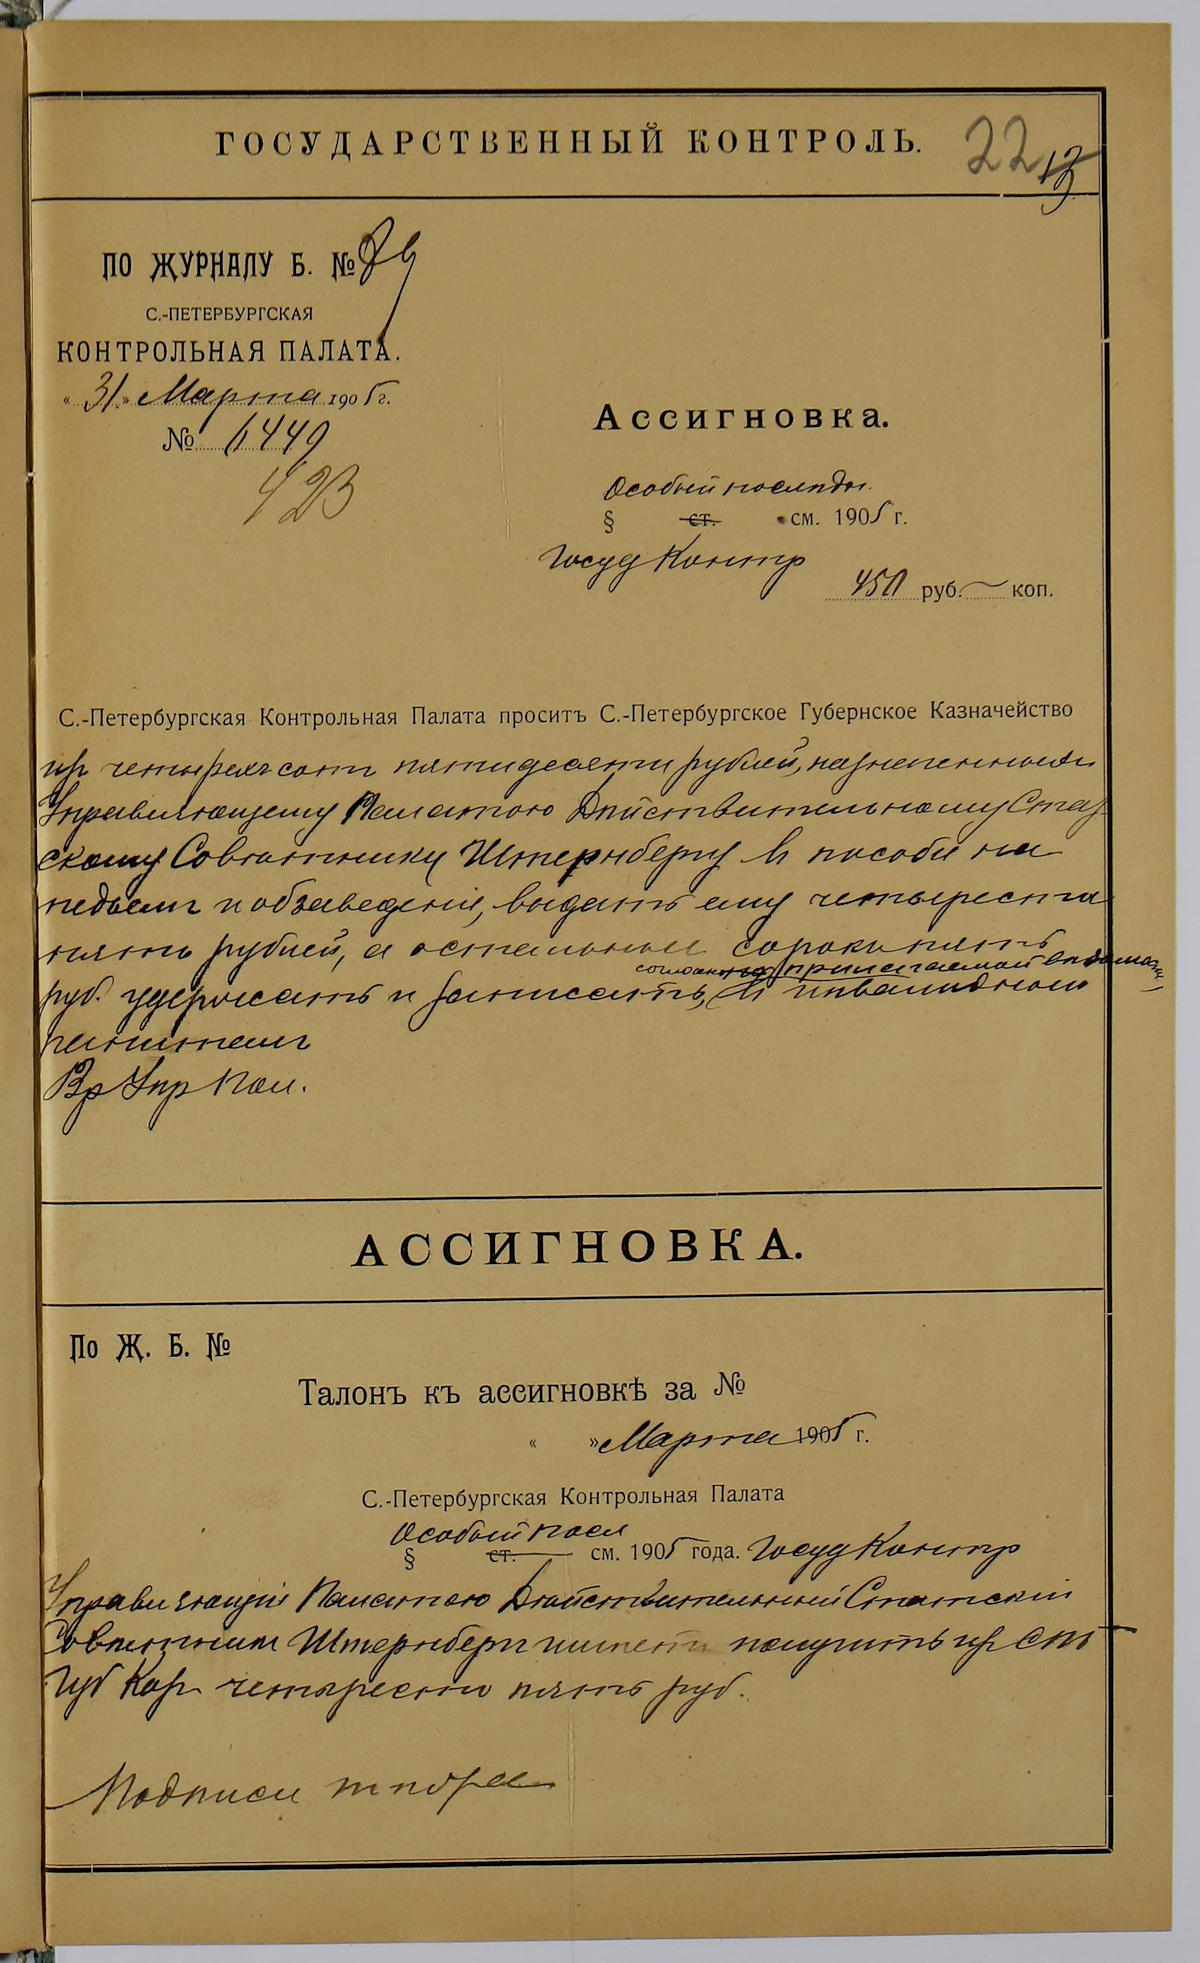 ГОСУДАРСТВЕННЫЙ КОНТРОЛЬ.
22 13
ПО ЖУРНАЛУ Б. №
С.-ПЕТЕРБУРГСКАЯ
КОНТРОЛЬНАЯ ПАЛАТА.
« 31 » Марта 1905 г.
№ 1449
423
Ассигновка.
Особый послѣдн.
§ ст. см. 1905 г.
Госуд Контр
450 руб. — коп.
С.-Петербургская Контрольная Палата проситъ С.-Петербургское Губернское Казначейство
из четырехсотъ пятидесяти рублей, назначенныхъ
Управляющему Палатою Дѣйствительному Стат
скому Совѣтнику Штернбергу въ пособіе на
подъемъ и обзаведеніе, выдать ему четыреста
пять рублей, а остальные сорокъ пять
согласно прилагаемой вѣдомости,
руб. удержать и записать, въ инвалидный
капиталъ
Вр Упр Пал.
АССИГНОВКА.
По Ж. Б. №
Талонъ къ ассигновкѣ за №
« » Марта 1905 г.
С.-Петербургская Контрольная Палата
Особый посл
§ ст. см. 1905 года. Госуд Контр
Управляющій Палатою Дѣйствительный Статскій
Совѣтникъ Штернбергъ имѣетъ получить из Спб
Губ Каз четыреста пять руб.
Подписи